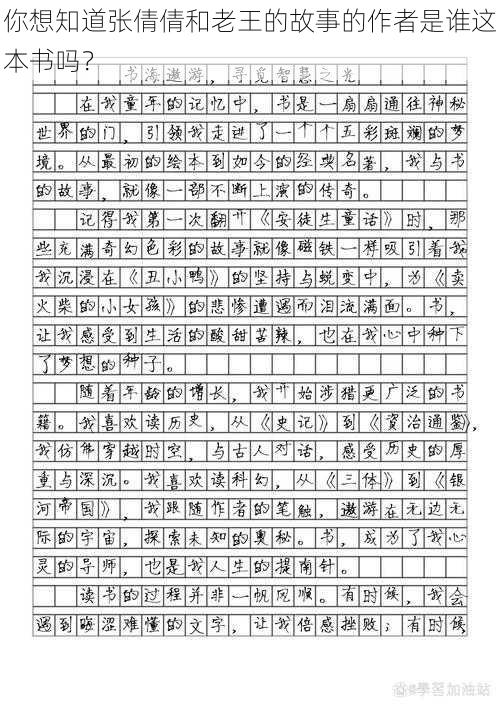 你想知道张倩倩和老王的故事的作者是谁这
本书吗？
书海遨游，寻觅智慧之光
在我童年的记忆中，书是一扇扇通往神秘
世界的门，引领我走进了一个个五彩斑斓的梦
境。从最初的绘本到如今的经典名著，我与书
的故事，就像一部不断上演的传奇。
记得我第一次翻开《安徒生童话》时，那
些充满奇幻色彩的故事就像磁铁一样吸引着我
我沉浸在《丑小鸭》的坚持与蜕变中，为《卖
火柴的小女孩》的悲惨遭遇而泪流满面。书，
让我感受到生活的酸甜苦辣，也在我心中种下
了梦想的种子。
随着年龄的增长，我开始涉猎更广泛的书
籍。我喜欢读历史，从《史记》到《資治通鉴》，
我仿佛穿越时空，与古人对话，感受历史的厚
重与深沉。我喜欢读科幻，从《三体》到《银
河帝国》，我跟随作者的笔触，遨游在无边无
际的宇宙，探索未知的奥秘。书，成为了我心
灵的导师，也是我人生的提南针。
读书的过程并非一帆风顺。有时候，我会
遇到晦涩难懂的文字，让我倍感挫败；有时候
學習加油站